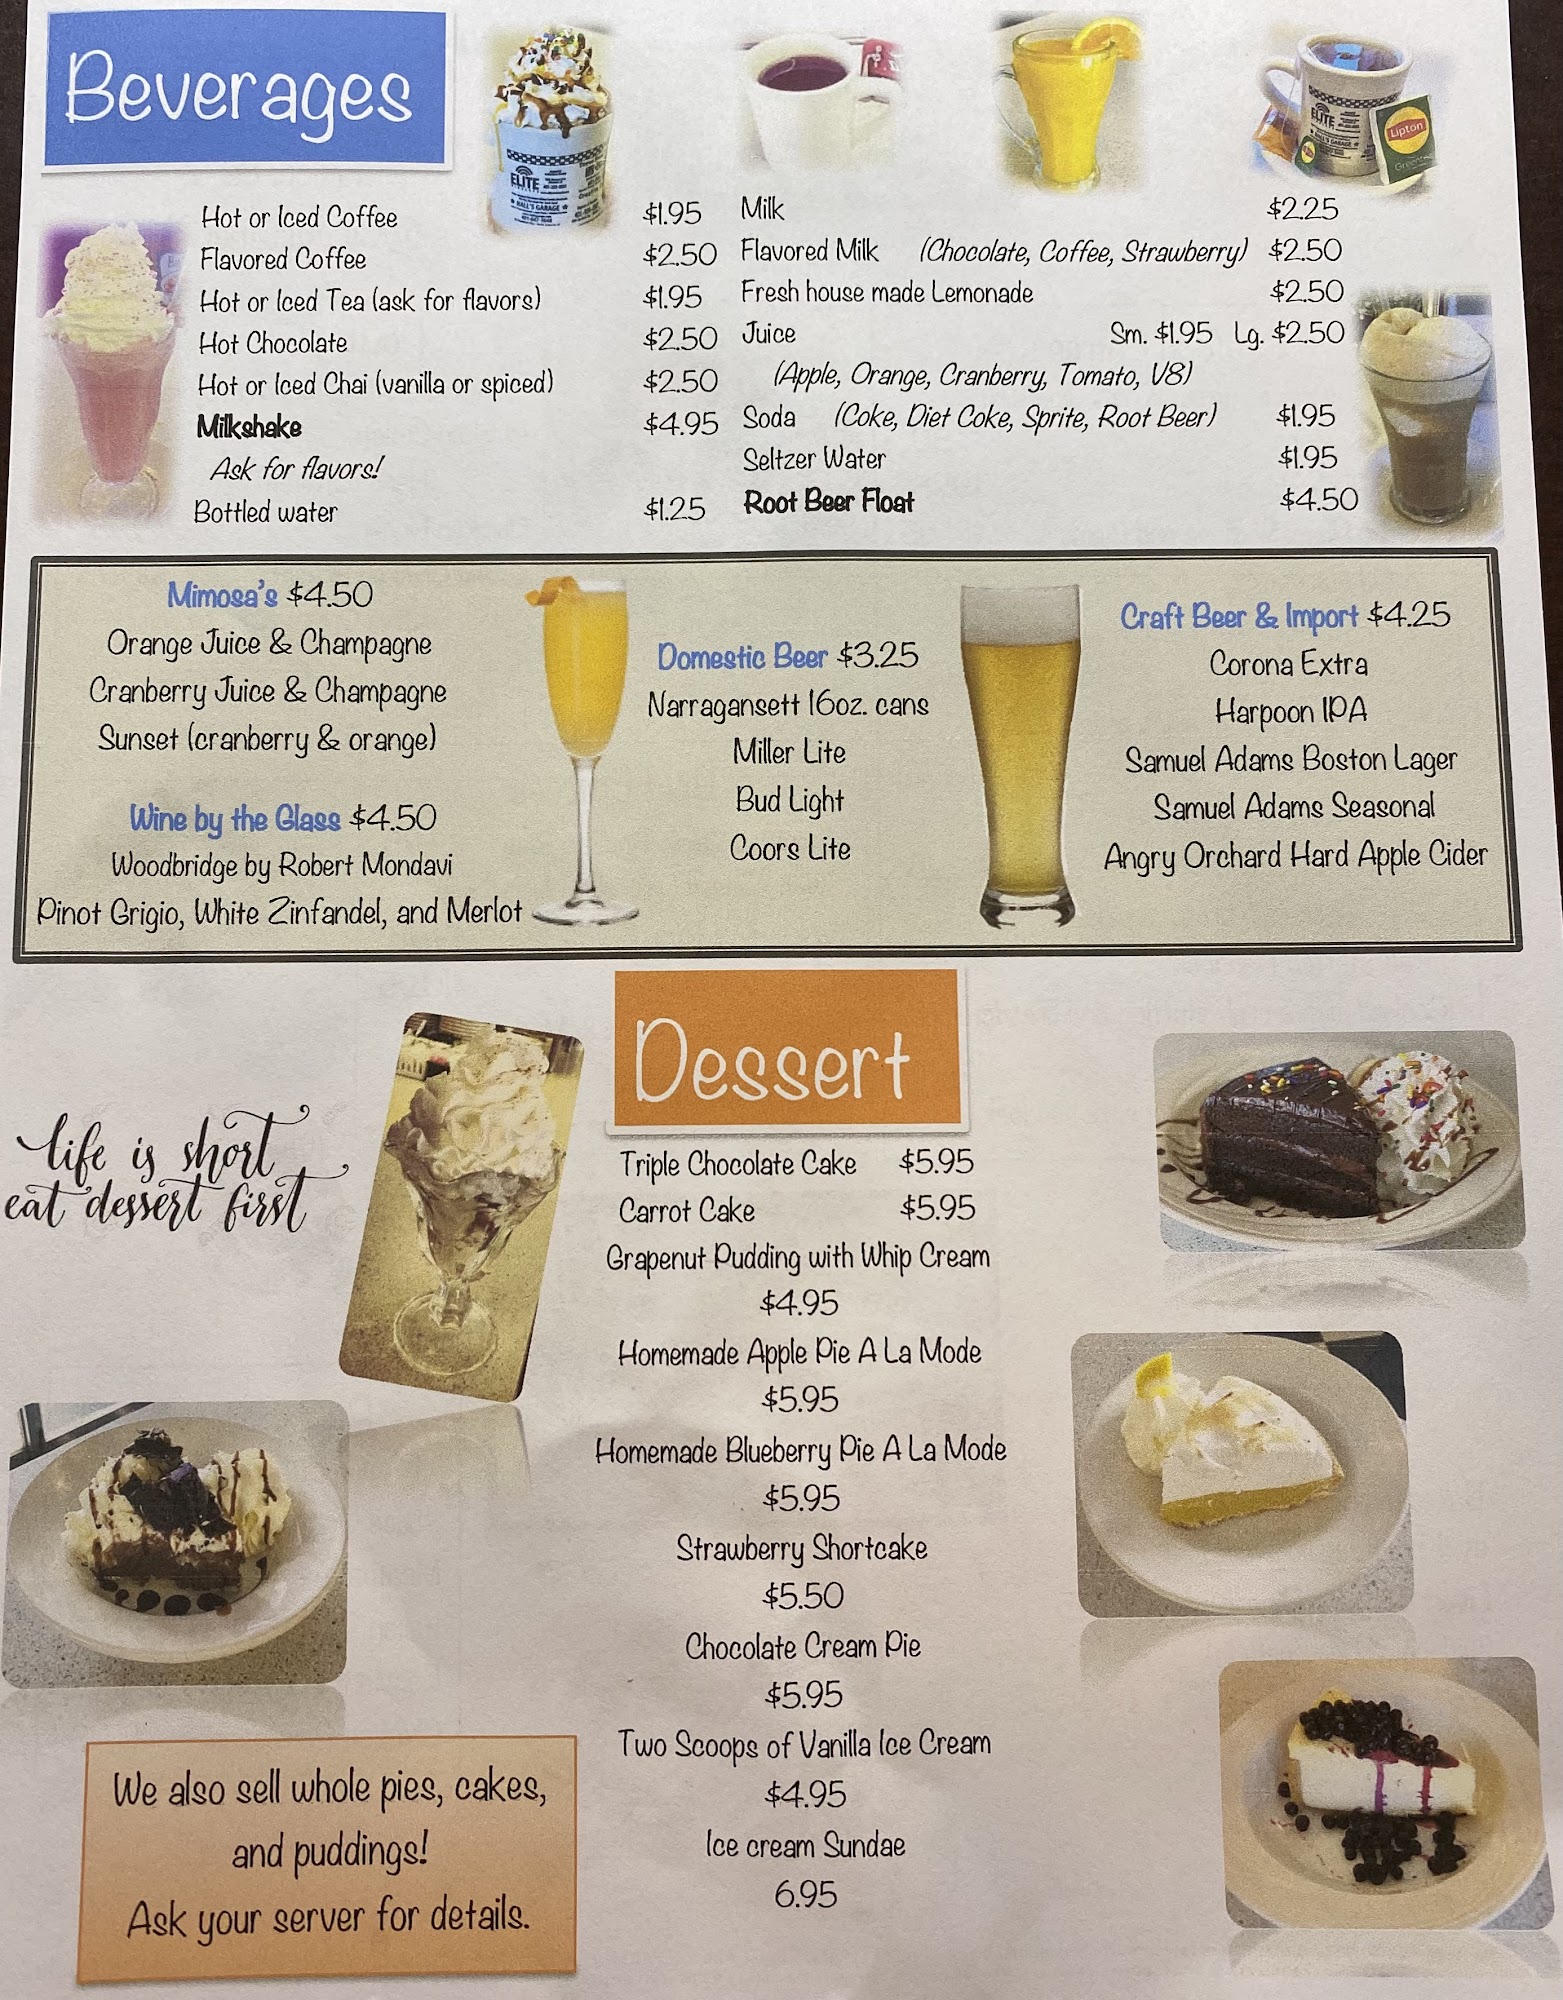 Beverages
ELITE
HALL'S GARAGE
ELITE
HALL'S GARAGE
Lipton
Green
Hot or Iced Coffee $1.95
Flavored Coffee $2.50
Hot or Iced Tea (ask for flavors) $1.95
Hot Chocolate $2.50
Hot or Iced Chai (vanilla or spiced) $2.50
Milkshake $4.95
Ask for flavors!
Bottled water $1.25
Milk $2.25
Flavored Milk (Chocolate, Coffee, Strawberry) $2.50
Fresh house made Lemonade $2.50
Juice Sm. $1.95 Lg. $2.50
(Apple, Orange, Cranberry, Tomato, V8)
Soda (Coke, Diet Coke, Sprite, Root Beer) $1.95
Seltzer Water $1.95
Root Beer Float $4.50
Mimosa's $4.50
Orange Juice & Champagne
Cranberry Juice & Champagne
Sunset (cranberry & orange)
Wine by the Glass $4.50
Woodbridge by Robert Mondavi
Pinot Grigio, White Zinfandel, and Merlot
Domestic Beer $3.25
Narragansett 16oz. cans
Miller Lite
Bud Light
Coors Lite
Craft Beer & Import $4.25
Corona Extra
Harpoon IPA
Samuel Adams Boston Lager
Samuel Adams Seasonal
Angry Orchard Hard Apple Cider
Dessert
life is short
eat dessert first
Triple Chocolate Cake $5.95
Carrot Cake $5.95
Grapenut Pudding with Whip Cream
$4.95
Homemade Apple Pie A La Mode
$5.95
Homemade Blueberry Pie A La Mode
$5.95
Strawberry Shortcake
$5.50
Chocolate Cream Pie
$5.95
Two Scoops of Vanilla Ice Cream
$4.95
Ice cream Sundae
6.95
We also sell whole pies, cakes,
and puddings!
Ask your server for details.